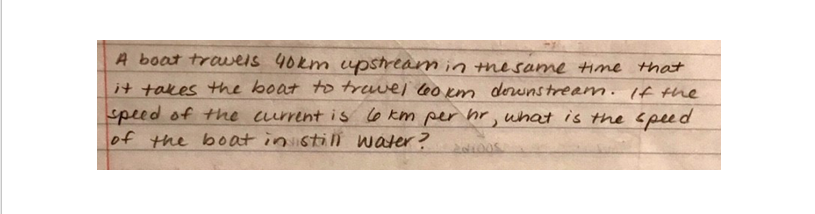 A boat travels 40km upstream in the same time that
it takes the boat to travel 60 km downstream. If the
speed of the current is 6 km per hr, what is the speed
of the boat in still water?